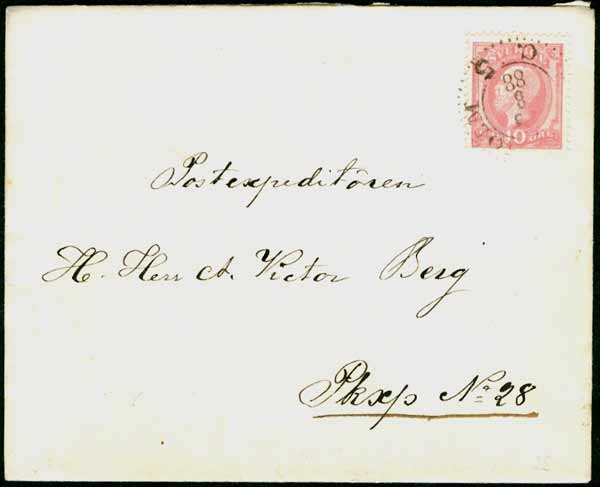 SVERIGE
10 ÖRE
88
8
Postexpeditören
H. Herr A. Victor Berg
Pkxp No 28